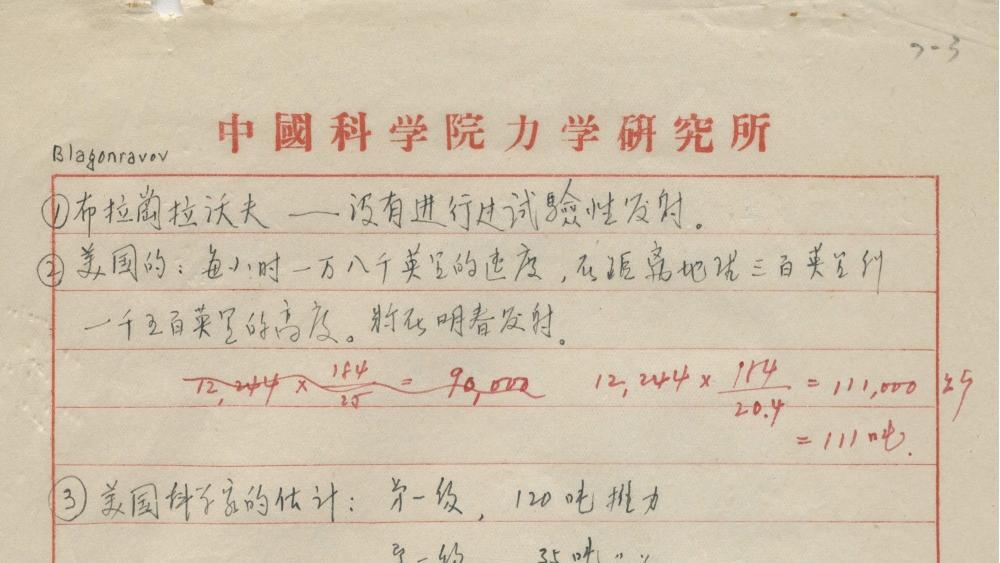 2-3
中國科学院力学研究所
Blagonravov
①布拉崗拉沃夫 — 没有进行过试驗性发射。
②美国的：每小时一万八千英里的速度，在距离地球三百英里到
一千五百英里的高度。将在明春发射。
12,244 × 184/25 = 90,000 12,244 × 184/20.4 = 111,000 公斤
= 111吨.
③美国科学家的估计：第一级，120吨推力
35吨 〃 〃